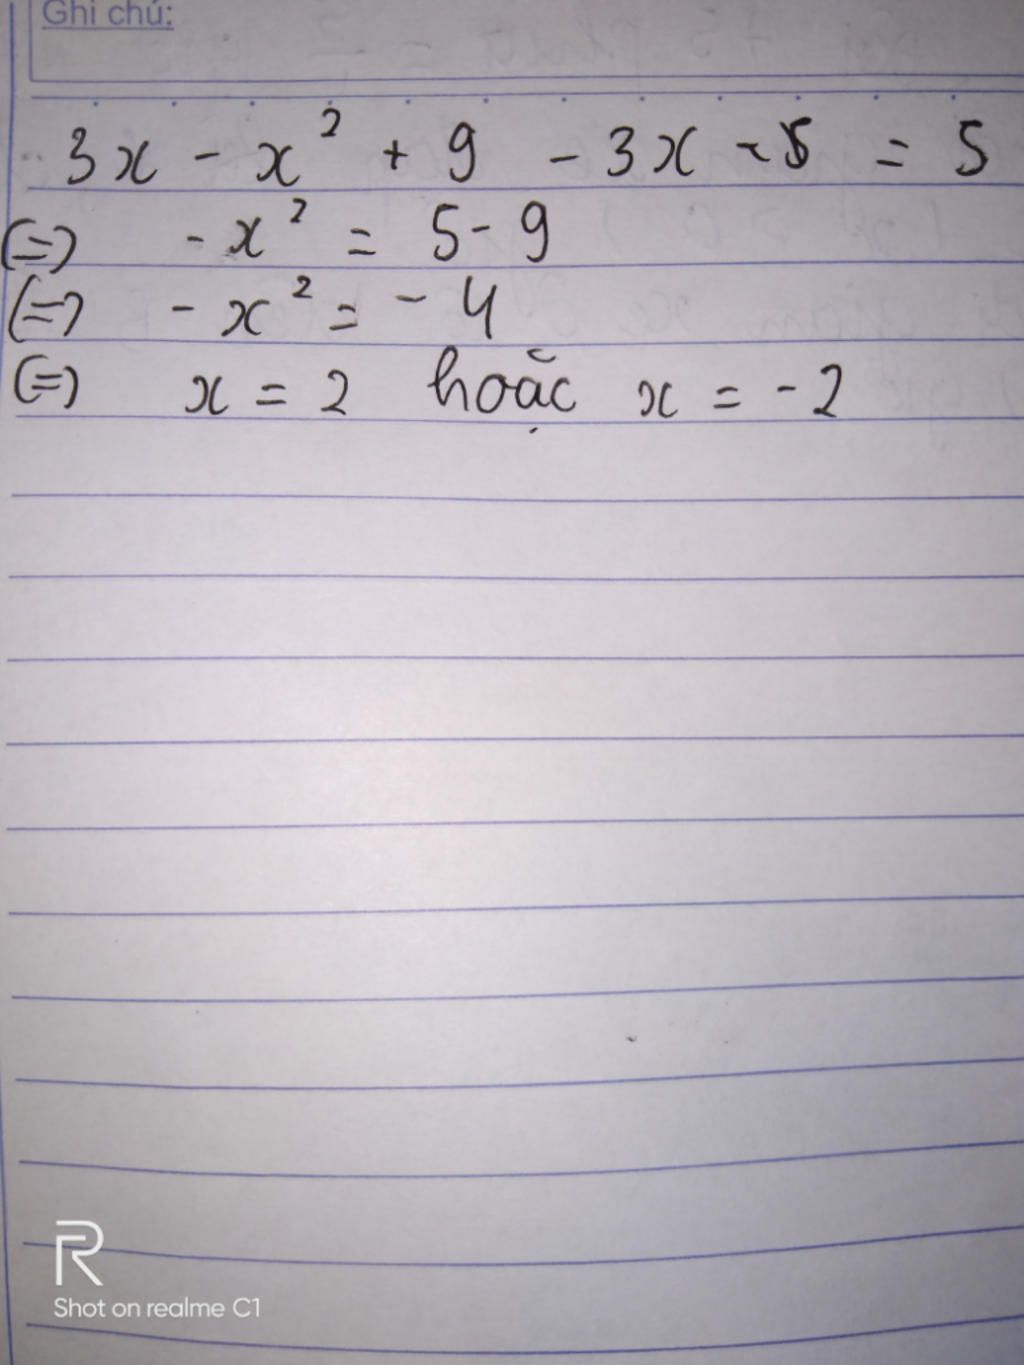 Ghi chú:
3x - x² + 9 - 3x = 5
(=) - x² = 5 - 9
(=) - x² = - 4
(=) x = 2 hoặc x = -2
R
Shot on realme C1